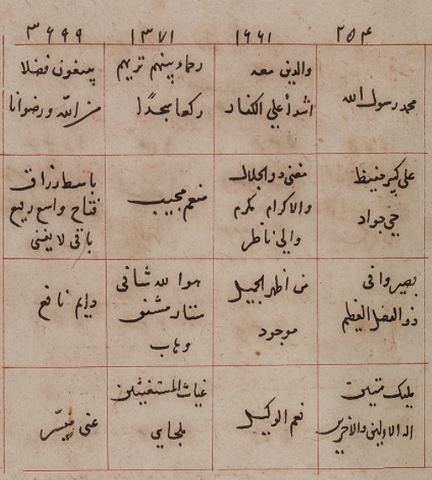 ٢٥۴ ١٦٦١ ١٣٧١ ٣٦٩٩
محمد رسول الله
والذين معه
اشدأ علي الكفار
رحماء بينهم تريهم
ركعا سجدًا
يبتغون فضلا
من الله ورضوانا
علي كبير حفيظ
حي جواد
مغني ذو الجلال
والاكرام مكرم
والي ناظر
منعم مجيب
باسط رزاق
فتاح واسع ربيع
باقي لا يفنى
بصير وافي
ذو الفضل العظيم
من اظهر الجميل
موجود
هو الله شافي
ستار مشفق
وهاب
دايم نافع
مليك متين
اله الاولين والاخرين
نعم الوكيل
غياث المستغيثين
ملجاي
غني ميسّر